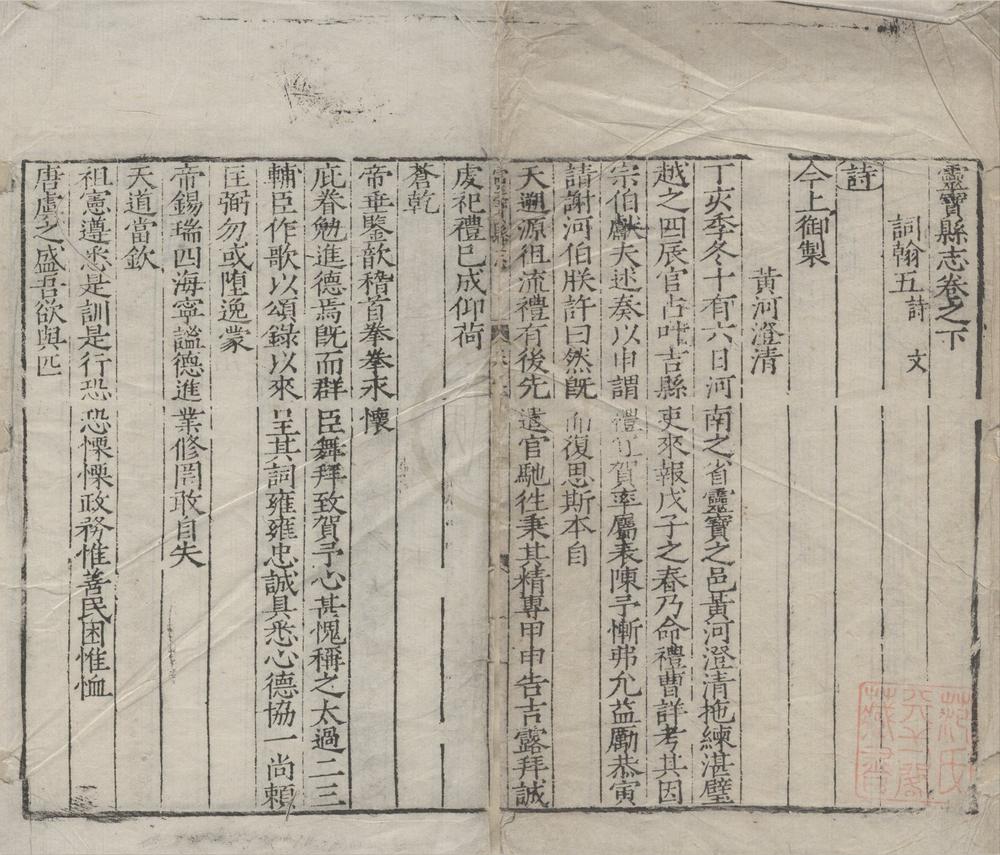 靈寶縣志卷之下
詞翰五 詩 文
詩
今上御製
黃河澄清
丁亥季冬十有六日河南之省靈寶之邑黃河澄清拖練湛璧
越之四辰官占叶吉縣吏來報戊子之春乃命禮曹詳考其因
宗伯獻夫述奏以申謂禮宜賀率屬表陳予慚弗允益勵恭寅
請謝河伯朕許曰然既而復思斯本自
天遡源徂流禮有後先遠官馳徃秉其精專甲申告吉露拜誠
虔祀禮巳成仰荷
蒼乾
帝垂鑒歆稽首拳拳永懷
庇眷勉進德焉既而群臣舞拜致賀予心甚愧稱之太過二三
輔臣作歌以頌錄以來呈其詞雍雍忠誠具悉心德協一尚賴
匡弼勿或墮逸蒙
帝錫瑞四海寧謐德進業修罔敢自失
天道當欽
祖憲遵悉是訓是行恐恐慄慄政務惟善民困惟恤
唐虞之盛吾欲與匹
范氏天一閣藏書